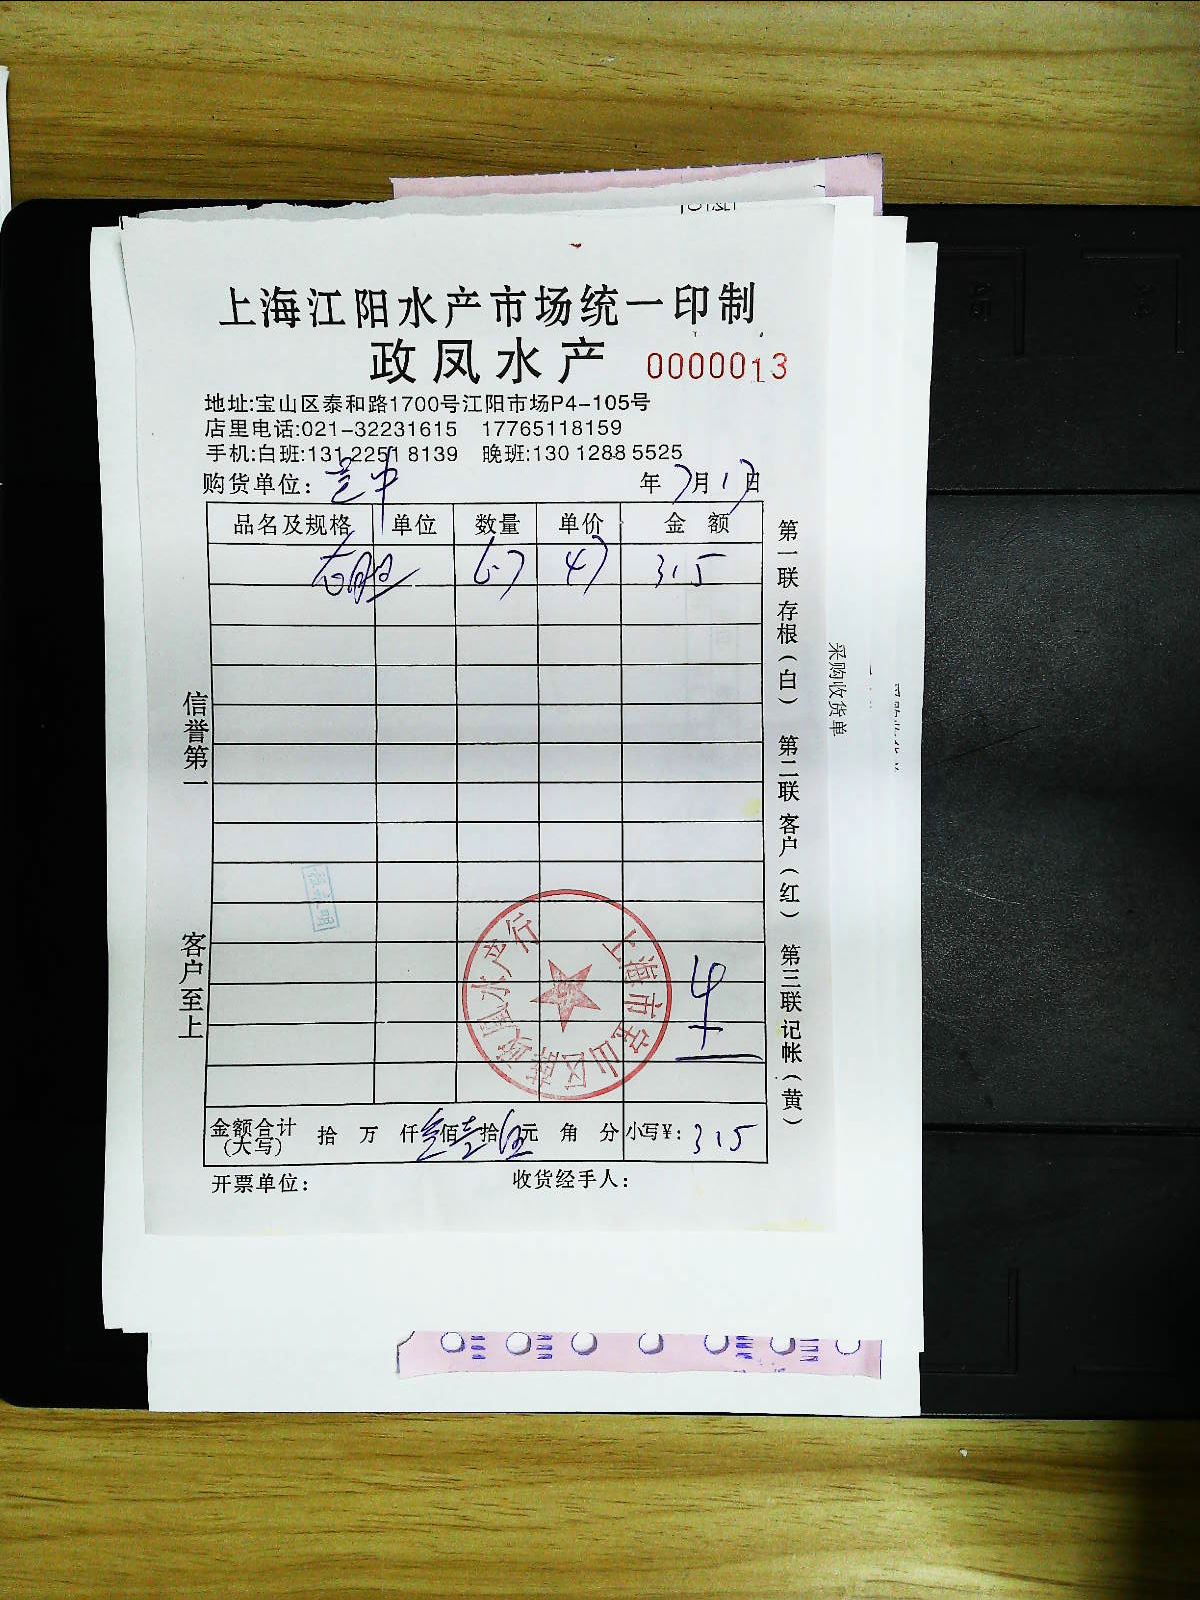 上海江阳水产市场统一印制
政凤水产 0000013
地址:宝山区泰和路1700号江阳市场P4-105号
店里电话:021-32231615 17765118159
手机:白班:131 2251 8139 晚班:130 1288 5525
购货单位: 年 7月17日
品名及规格 单位 数量 单价 金 额
6.7 47 315
信誉第一
客户至上
第一联 存根(白) 第二联 客户(红) 第三联 记帐(黄)
采购收货单
上海市宝山区薛峻国水产行
金额合计(大写) 拾 万 仟叁佰壹拾伍元 角 分 小写¥: 315
开票单位: 收货经手人: